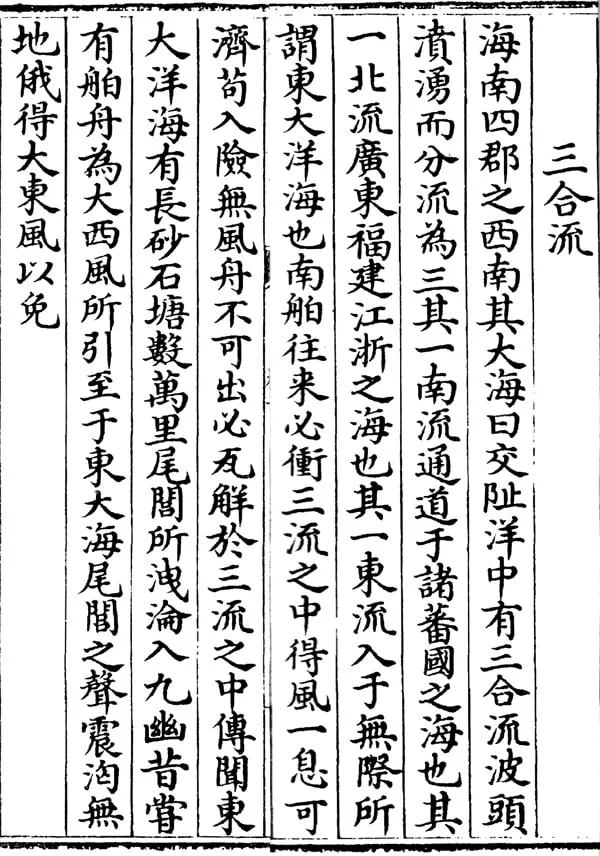 三合流
海南四郡之西南其大海曰交阯洋中有三合流波頭
濆湧而分流為三其一南流通道于諸蕃國之海也其
一北流廣東福建江浙之海也其一東流入于無際所
謂東大洋海也南舶往来必衝三流之中得風一息可
濟茍入險無風舟不可出必瓦解於三流之中傳聞東
大洋海有長砂石塘數萬里尾閭所洩淪入九幽昔嘗
有舶舟為大西風所引至于東大海尾閭之聲震洶無
地俄得大東風以免